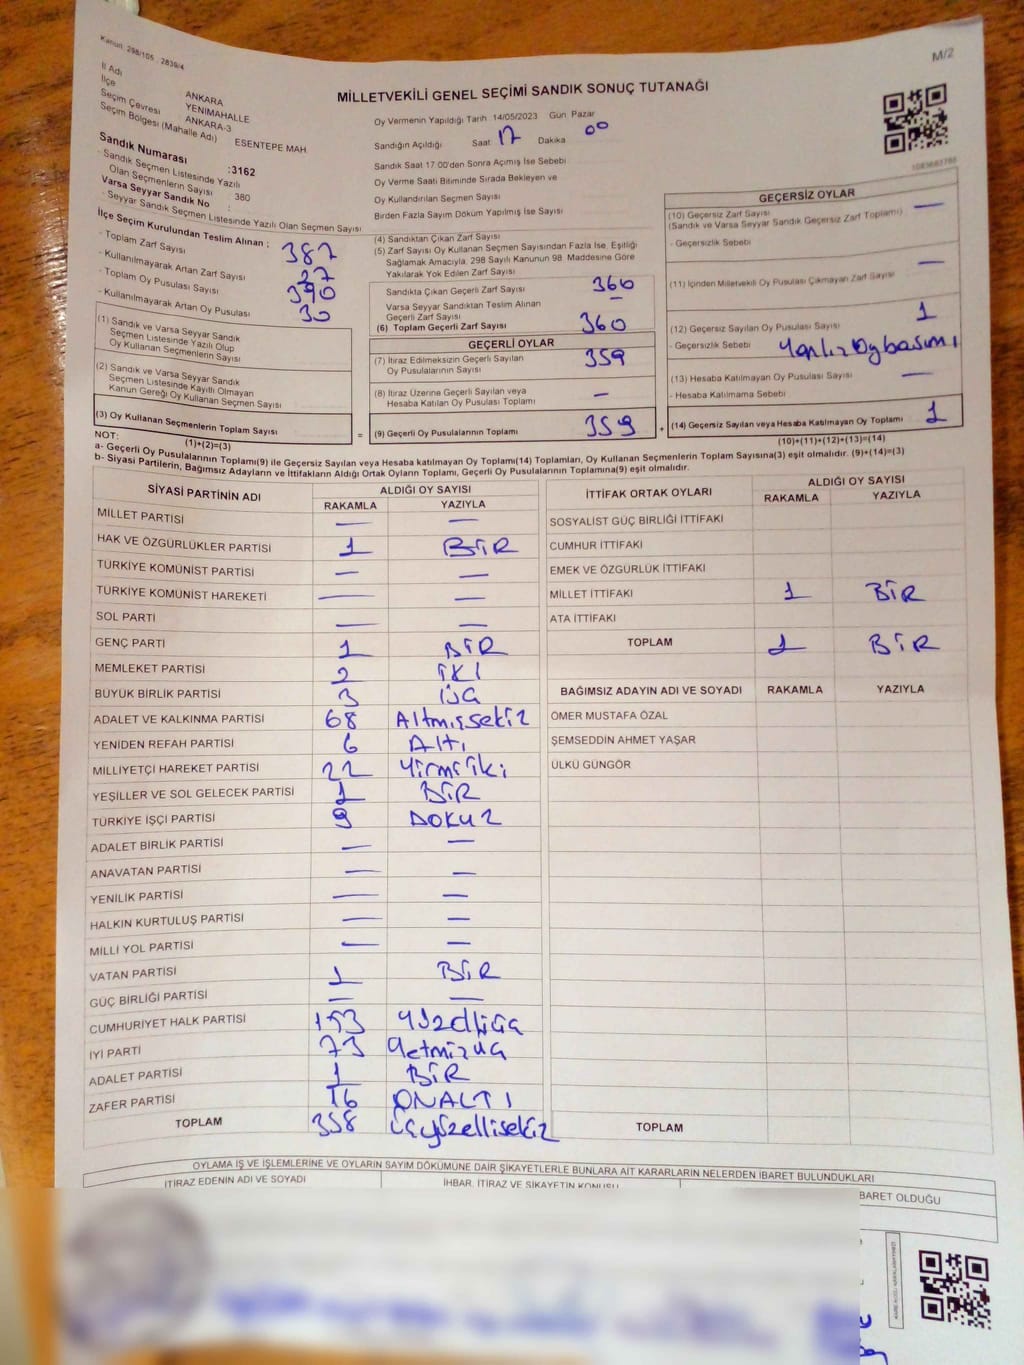 Kanun: 298/105 , 2839/4
M/2
MİLLETVEKİLİ GENEL SEÇİMİ SANDIK SONUÇ TUTANAĞI
İl Adı ANKARA
İlçe YENİMAHALLE
Seçim Çevresi ANKARA-3
Seçim Bölgesi (Mahalle Adı) ESENTEPE MAH
Sandık Numarası :3162
- Sandık Seçmen Listesinde Yazılı
Olan Seçmenlerin Sayısı : 380
Varsa Seyyar Sandık No :
- Seyyar Sandık Seçmen Listesinde Yazılı Olan Seçmen Sayısı
İlçe Seçim Kurulundan Teslim Alınan ;
- Toplam Zarf Sayısı 387
- Kullanılmayarak Artan Zarf Sayısı 27
- Toplam Oy Pusulası Sayısı 390
- Kullanılmayarak Artan Oy Pusulası 30
(1) Sandık ve Varsa Seyyar Sandık
Seçmen Listesinde Yazılı Olup
Oy Kullanan Seçmenlerin Sayısı
(2) Sandık ve Varsa Seyyar Sandık
Seçmen Listesinde Kayıtlı Olmayan
Kanun Gereği Oy Kullanan Seçmen Sayısı
(3) Oy Kullanan Seçmenlerin Toplam Sayısı
(1)+(2)=(3)
Oy Vermenin Yapıldığı Tarih 14/05/2023 Gün Pazar
Sandığın Açıldığı Saat 17 Dakika 00
Sandık Saat 17.00'den Sonra Açılmış İse Sebebi
Oy Verme Saati Bitiminde Sırada Bekleyen ve
Oy Kullandırılan Seçmen Sayısı
Birden Fazla Sayım Döküm Yapılmış İse Sayısı
(4) Sandıktan Çıkan Zarf Sayısı
(5) Zarf Sayısı Oy Kullanan Seçmen Sayısından Fazla İse, Eşitliği
Sağlamak Amacıyla, 298 Sayılı Kanunun 98. Maddesine Göre
Yakılarak Yok Edilen Zarf Sayısı
Sandıkta Çıkan Geçerli Zarf Sayısı 360
Varsa Seyyar Sandıktan Teslim Alınan
Geçerli Zarf Sayısı —
(6) Toplam Geçerli Zarf Sayısı 360
GEÇERLİ OYLAR
(7) İtiraz Edilmeksizin Geçerli Sayılan
Oy Pusulalarının Sayısı 359
(8) İtiraz Üzerine Geçerli Sayılan veya
Hesaba Katılan Oy Pusulası Toplamı —
= (9) Geçerli Oy Pusulalarının Toplamı 359 +
1083683766
GEÇERSİZ OYLAR
(10) Geçersiz Zarf Sayısı —
(Sandık ve Varsa Seyyar Sandık Geçersiz Zarf Toplamı)
- Geçersizlik Sebebi
(11) İçinden Milletvekili Oy Pusulası Çıkmayan Zarf Sayısı —
(12) Geçersiz Sayılan Oy Pusulası Sayısı 1
- Geçersizlik Sebebi Yanlız Oy basımı
(13) Hesaba Katılmayan Oy Pusulası Sayısı —
- Hesaba Katılmama Sebebi
(14) Geçersiz Sayılan veya Hesaba Katılmayan Oy Toplamı 1
(10)+(11)+(12)+(13)=(14)
NOT:
a- Geçerli Oy Pusulalarının Toplamı(9) ile Geçersiz Sayılan veya Hesaba katılmayan Oy Toplamı(14) Toplamları, Oy Kullanan Seçmenlerin Toplam Sayısına(3) eşit olmalıdır. (9)+(14)=(3)
b- Siyasi Partilerin, Bağımsız Adayların ve İttifakların Aldığı Ortak Oyların Toplamı, Geçerli Oy Pusulalarının Toplamına(9) eşit olmalıdır.
SİYASİ PARTİNİN ADI ALDIĞI OY SAYISI
RAKAMLA YAZIYLA
MİLLET PARTİSİ — —
HAK VE ÖZGÜRLÜKLER PARTİSİ 1 BİR
TÜRKİYE KOMÜNİST PARTİSİ — —
TÜRKİYE KOMÜNİST HAREKETİ — —
SOL PARTİ — —
GENÇ PARTİ 1 BİR
MEMLEKET PARTİSİ 2 İKİ
BÜYÜK BİRLİK PARTİSİ 3 ÜÇ
ADALET VE KALKINMA PARTİSİ 68 Altmışsekiz
YENİDEN REFAH PARTİSİ 6 Altı
MİLLİYETÇİ HAREKET PARTİSİ 22 Yirmiiki
YEŞİLLER VE SOL GELECEK PARTİSİ 1 BİR
TÜRKİYE İŞÇİ PARTİSİ 9 DOKUZ
ADALET BİRLİK PARTİSİ — —
ANAVATAN PARTİSİ — —
YENİLİK PARTİSİ — —
HALKIN KURTULUŞ PARTİSİ — —
MİLLİ YOL PARTİSİ — —
VATAN PARTİSİ 1 BİR
GÜÇ BİRLİĞİ PARTİSİ — —
CUMHURİYET HALK PARTİSİ 153
İYİ PARTİ 73 Yetmizüç
ADALET PARTİSİ 1 BİR
ZAFER PARTİSİ 16 ONALTI
TOPLAM 358 üçyüzellisekiz
İTTİFAK ORTAK OYLARI ALDIĞI OY SAYISI
RAKAMLA YAZIYLA
SOSYALİST GÜÇ BİRLİĞİ İTTİFAKI
CUMHUR İTTİFAKI
EMEK VE ÖZGÜRLÜK İTTİFAKI
MİLLET İTTİFAKI 1 BİR
ATA İTTİFAKI
TOPLAM 1 BİR
BAĞIMSIZ ADAYIN ADI VE SOYADI RAKAMLA YAZIYLA
ÖMER MUSTAFA ÖZAL
ŞEMSEDDİN AHMET YAŞAR
ÜLKÜ GÜNGÖR
TOPLAM
OYLAMA İŞ VE İŞLEMLERİNE VE OYLARIN SAYIM DÖKÜMÜNE DAİR ŞİKAYETLERLE BUNLARA AİT KARARLARIN NELERDEN İBARET BULUNDUKLARI
İTİRAZ EDENİN ADI VE SOYADI İHBAR, İTİRAZ VE ŞİKAYETİN KONUSU BARET OLDUĞU